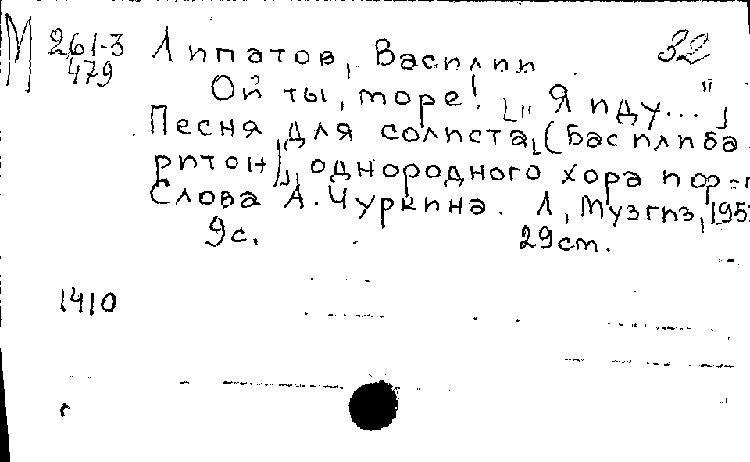 М 261-3 Липатов, Василий 32
479
Ой ты, море! [„Я иду..."]
Песня для солиста [(бас или ба-
ритон)], однородного хора и ф-п
Слова А. Чуркина. Л, Музгиз, 195
9с. 29 cm.
1410